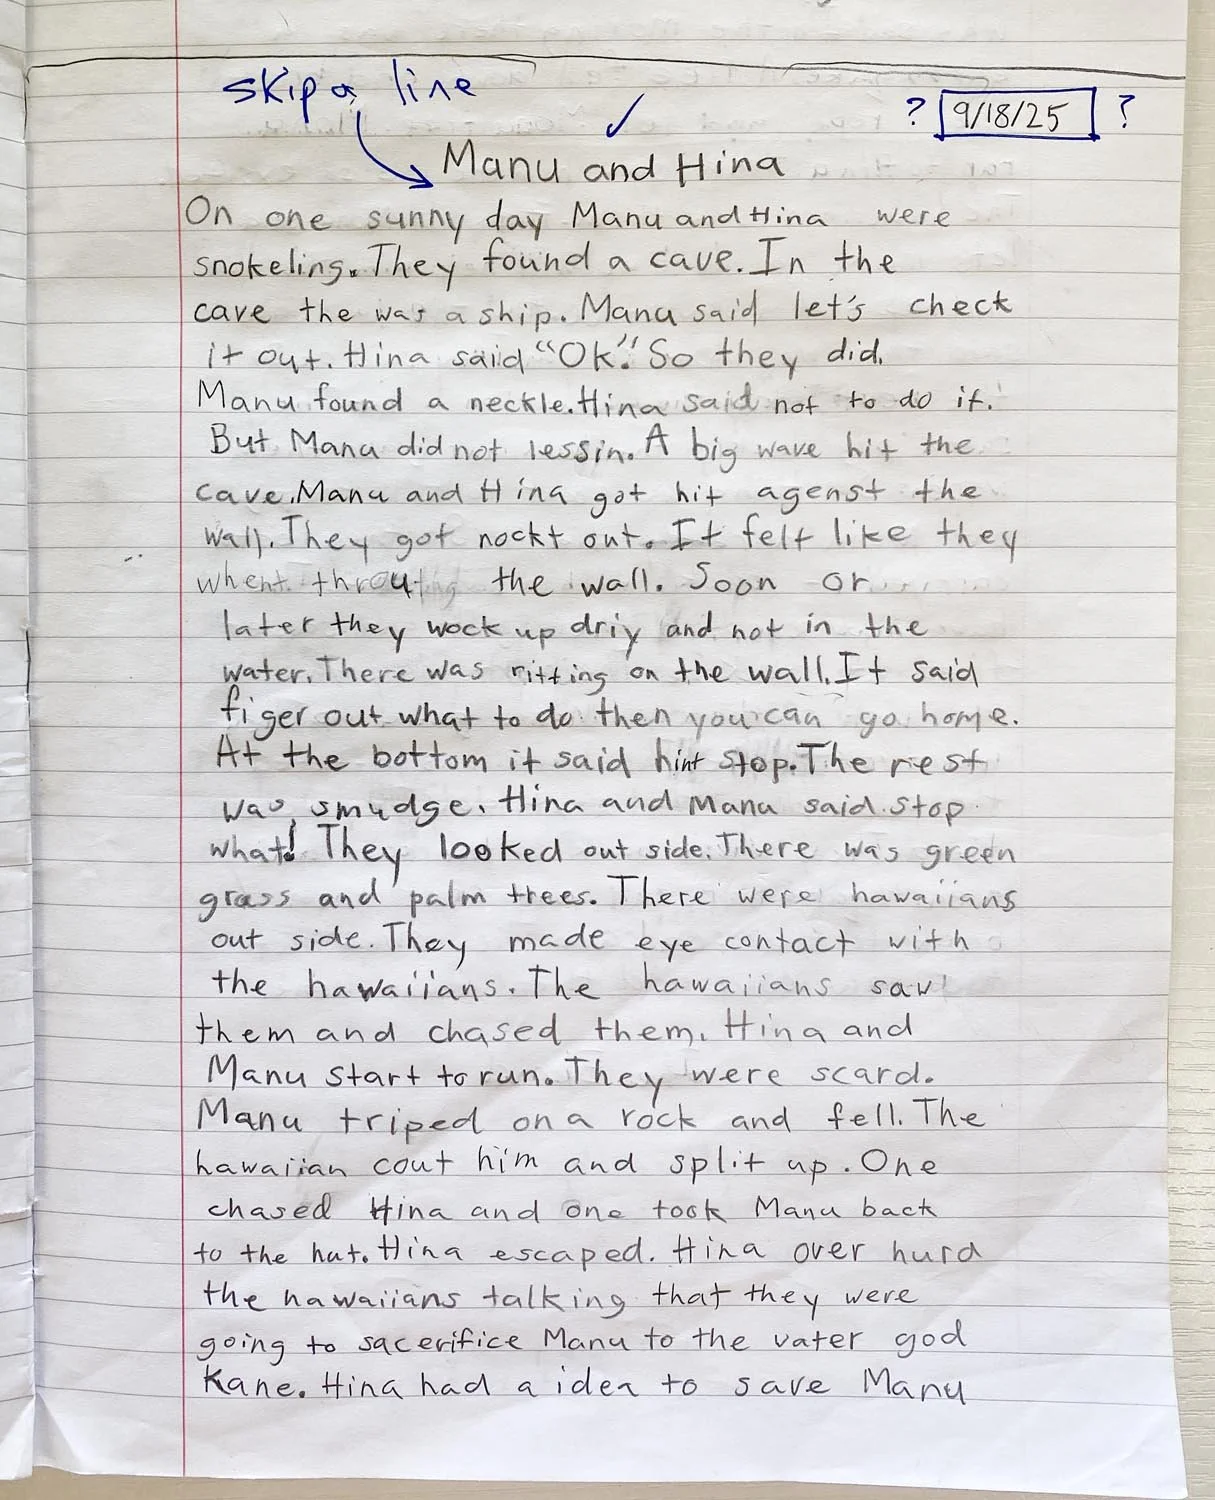 skip a line
? 9/18/25 ?
Manu and Hina
On one sunny day Manu and Hina were
snokeling. They found a cave. In the
cave the was a ship. Manu said let's check
it out. Hina said "Ok". So they did.
Manu found a neckle. Hina said not to do it.
But Manu did not lessin. A big wave hit the
cave. Manu and Hina got hit agenst the
wall. They got nockt out. It felt like they
whent throu the wall. Soon or
later they wock up driy and not in the
water. There was ritting on the wall. It said
figer out what to do then you can go home.
At the bottom it said hint stop. The rest
was smudge. Hina and Manu said stop
what! They looked out side. There was green
grass and palm trees. There were hawaiians
out side. They made eye contact with
the hawaiians. The hawaiians saw
them and chased them. Hina and
Manu start to run. They were scard.
Manu triped on a rock and fell. The
hawaiian cout him and split up. One
chased Hina and one took Manu back
to the hut. Hina escaped. Hina over hurd
the hawaiians talking that they were
going to sacerifice Manu to the water god
Kane. Hina had a idea to save Manu